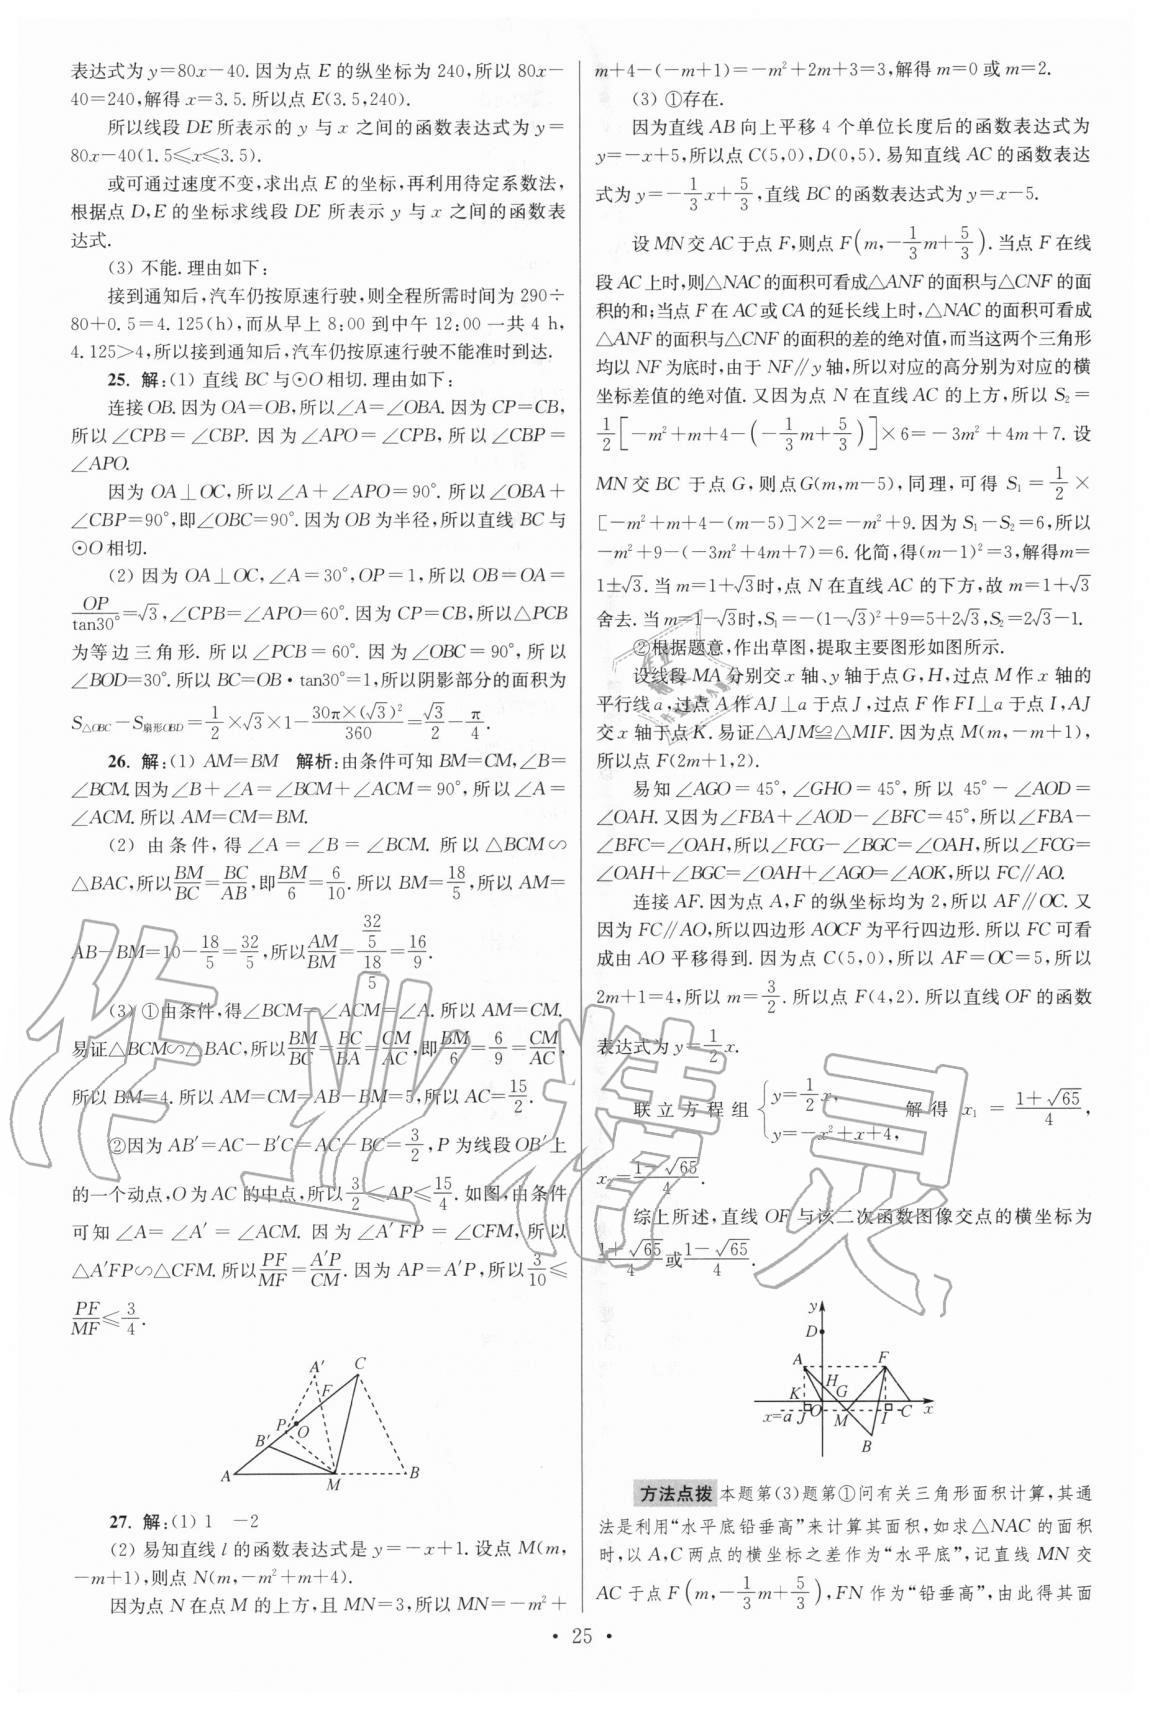 表达式为y=80x-40.因为点 E 的纵坐标为 240,所以 80x-
40=240,解得 x=3.5.所以点E(3.5,240).
所以线段 DE 所表示的 y 与 x 之间的函数表达式为 y=
80x-40(1.5≤x≤3.5).
或可通过速度不变,求出点 E 的坐标,再利用待定系数法,
根据点 D,E 的坐标求线段 DE 所表示 y 与 x 之间的函数表
达式.
(3) 不能.理由如下:
接到通知后,汽车仍按原速行驶,则全程所需时间为 290÷
80+0.5=4.125(h),而从早上 8:00 到中午 12:00 一共 4 h,
4.125>4,所以接到通知后,汽车仍按原速行驶不能准时到达.
25. 解:(1) 直线 BC 与⊙O 相切.理由如下:
连接 OB.因为 OA=OB,所以∠A=∠OBA.因为 CP=CB,
所以∠CPB=∠CBP. 因为∠APO=∠CPB,所以∠CBP=
∠APO.
因为 OA⊥OC,所以∠A+∠APO=90°.所以∠OBA+
∠CBP=90°,即∠OBC=90°.因为 OB 为半径,所以直线 BC 与
⊙O 相切.
(2) 因为 OA⊥OC,∠A=30°,OP=1,所以 OB=OA=
OP/tan30°=√3,∠CPB=∠APO=60°.因为 CP=CB,所以△PCB
为等边三角形.所以∠PCB=60°.因为∠OBC=90°,所以
∠BOD=30°.所以 BC=OB·tan30°=1,所以阴影部分的面积为
S△OBC-S扇形OBD=1/2×√3×1-30π×(√3)²/360=√3/2-π/4.
26. 解:(1) AM=BM 解析:由条件可知 BM=CM,∠B=
∠BCM.因为∠B+∠A=∠BCM+∠ACM=90°,所以∠A=
∠ACM.所以 AM=CM=BM.
(2) 由条件,得∠A=∠B=∠BCM. 所以△BCM∽
△BAC,所以BM/BC=BC/AB,即BM/6=6/10.所以 BM=18/5,所以 AM=
AB-BM=10-18/5=32/5,所以AM/BM=(32/5)/(18/5)=16/9.
(3) ①由条件,得∠BCM=∠ACM=∠A.所以 AM=CM.
易证△BCM∽△BAC,所以BM/BC=BC/BA=CM/AC,即BM/6=6/9=CM/AC,
所以 BM=4.所以 AM=CM=AB-BM=5,所以 AC=15/2.
②因为 AB′=AC-B′C=AC-BC=3/2,P 为线段 OB′上
的一个动点,O 为 AC 的中点,所以3/2≤AP≤15/4.如图,由条件
可知∠A=∠A′=∠ACM. 因为∠A′FP=∠CFM,所以
△A′FP∽△CFM.所以PF/MF=A′P/CM.因为 AP=A′P,所以3/10≤
PF/MF≤3/4.
A′
C
F
P
O
B′
A
M
B
27. 解:(1) 1 -2
(2) 易知直线 l 的函数表达式是 y=-x+1.设点 M(m,
-m+1),则点 N(m,-m²+m+4).
因为点 N 在点 M 的上方,且 MN=3,所以 MN=-m²+
m+4-(-m+1)=-m²+2m+3=3,解得 m=0 或 m=2.
(3) ①存在.
因为直线 AB 向上平移 4 个单位长度后的函数表达式为
y=-x+5,所以点 C(5,0),D(0,5).易知直线 AC 的函数表达
式为 y=-1/3x+5/3,直线 BC 的函数表达式为 y=x-5.
设 MN 交 AC 于点 F,则点 F(m,-1/3m+5/3).当点 F 在线
段 AC 上时,则△NAC 的面积可看成△ANF 的面积与△CNF 的面
积的和;当点 F 在 AC 或 CA 的延长线上时,△NAC 的面积可看成
△ANF 的面积与△CNF 的面积的差的绝对值,而当这两个三角形
均以 NF 为底时,由于 NF∥y 轴,所以对应的高分别为对应的横
坐标差值的绝对值.又因为点 N 在直线 AC 的上方,所以 S₂=
1/2[-m²+m+4-(-1/3m+5/3)]×6=-3m²+4m+7.设
MN 交 BC 于点 G,则点G(m,m-5),同理,可得 S₁=1/2×
[-m²+m+4-(m-5)]×2=-m²+9.因为 S₁-S₂=6,所以
-m²+9-(-3m²+4m+7)=6.化简,得(m-1)²=3,解得m=
1±√3.当 m=1+√3时,点 N 在直线 AC 的下方,故 m=1+√3
舍去.当 m=1-√3时,S₁=-(1-√3)²+9=5+2√3,S₂=2√3-1.
②根据题意,作出草图,提取主要图形如图所示.
设线段 MA 分别交 x 轴、y 轴于点 G,H,过点 M 作 x 轴的
平行线 a,过点 A 作 AJ⊥a 于点 J,过点 F 作 FI⊥a 于点 I,AJ
交 x 轴于点 K.易证△AJM≌△MIF.因为点 M(m,-m+1),
所以点 F(2m+1,2).
易知∠AGO=45°,∠GHO=45°,所以 45°-∠AOD=
∠OAH.又因为∠FBA+∠AOD-∠BFC=45°,所以∠FBA-
∠BFC=∠OAH,所以∠FCG-∠BGC=∠OAH,所以∠FCG=
∠OAH+∠BGC=∠OAH+∠AGO=∠AOK,所以 FC∥AO.
连接 AF.因为点 A,F 的纵坐标均为 2,所以 AF∥OC.又
因为 FC∥AO,所以四边形 AOCF 为平行四边形.所以 FC 可看
成由 AO 平移得到.因为点 C(5,0),所以 AF=OC=5,所以
2m+1=4,所以 m=3/2.所以点 F(4,2).所以直线 OF 的函数
表达式为 y=1/2x.
联立方程组{y=1/2x, y=-x²+x+4, 解得 x₁=(1+√65)/4,
x₂=(1-√65)/4.
综上所述,直线 OF 与该二次函数图像交点的横坐标为
(1+√65)/4或(1-√65)/4.
y
D
A
F
H
K
G
O
C
x
x=a
J
M
I
B
方法点拨 本题第(3)题第①问有关三角形面积计算,其通
法是利用“水平底铅垂高”来计算其面积,如求△NAC 的面积
时,以 A,C 两点的横坐标之差作为“水平底”,记直线 MN 交
AC 于点 F(m,-1/3m+5/3),FN 作为“铅垂高”,由此得其面
· 25 ·
作业精灵